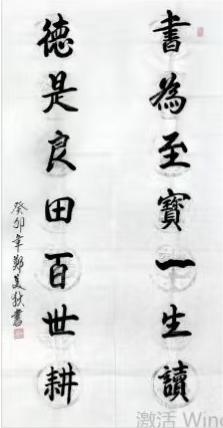 書為至寶一生讀
德是良田百世耕
癸卯年鄭美秋書
激活 Wind